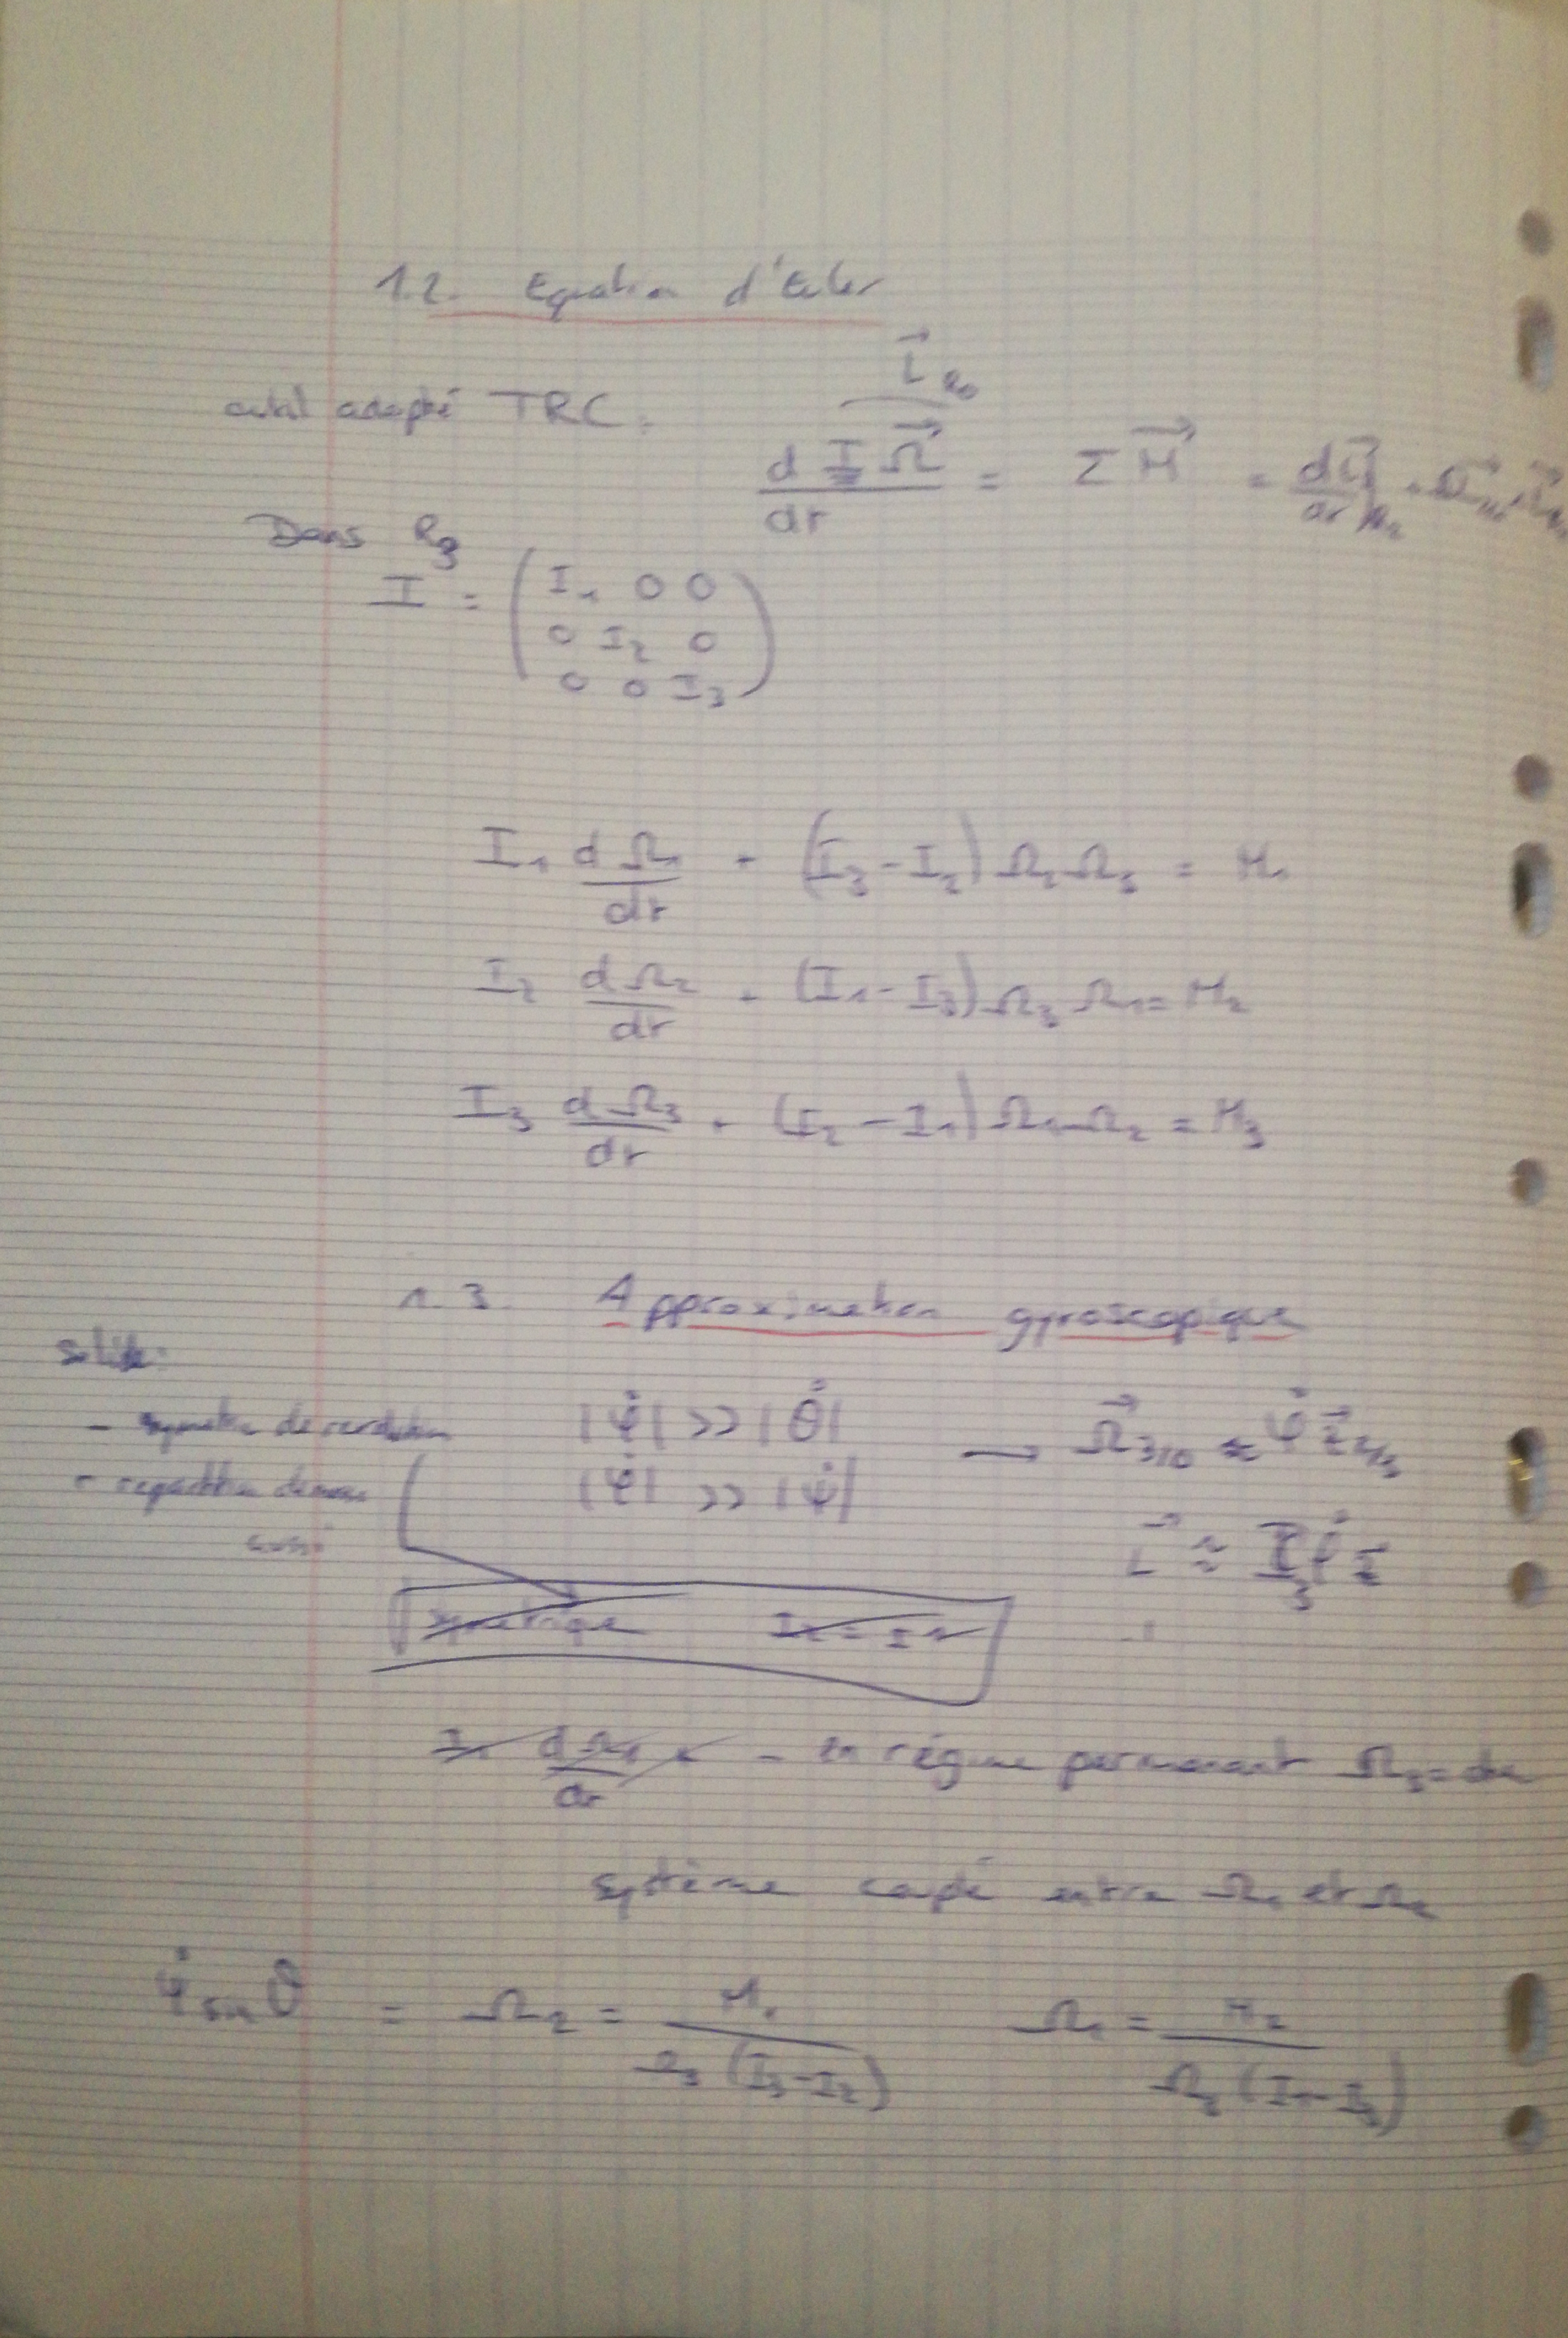 1.2. Equation d'Euler
outil adapté TRC :
d I Ω⃗ / dt = Σ M⃗ = dL⃗ / dt
L⃗ R0
Dans R3
I = ( I1 0 0
0 I2 0
0 0 I3 )
I1 dΩ1/dt + (I3 - I2) Ω2 Ω3 = M1
I2 dΩ2/dt + (I1 - I3) Ω3 Ω1 = M2
I3 dΩ3/dt + (I2 - I1) Ω1 Ω2 = M3
1.3. Approximation gyroscopique
Solide :
- symétrie de révolution
- répartition de masse
aussi
|φ̇| >> |θ̇|
|φ̇| >> |ψ̇|
→ Ω⃗ 3/0 ≈ φ̇ z⃗ 2/3
L⃗ ≈ I3 φ̇ z⃗
symétrique I2 = I1
I1 dΩ1/dt + - en régime permanent Ω3 = cte
système couplé entre Ω1 et Ω2
ψ̇ sin θ = Ω2 = M1 / Ω3 (I3 - I2) Ω1 = M2 / Ω3 (I1 - I3)